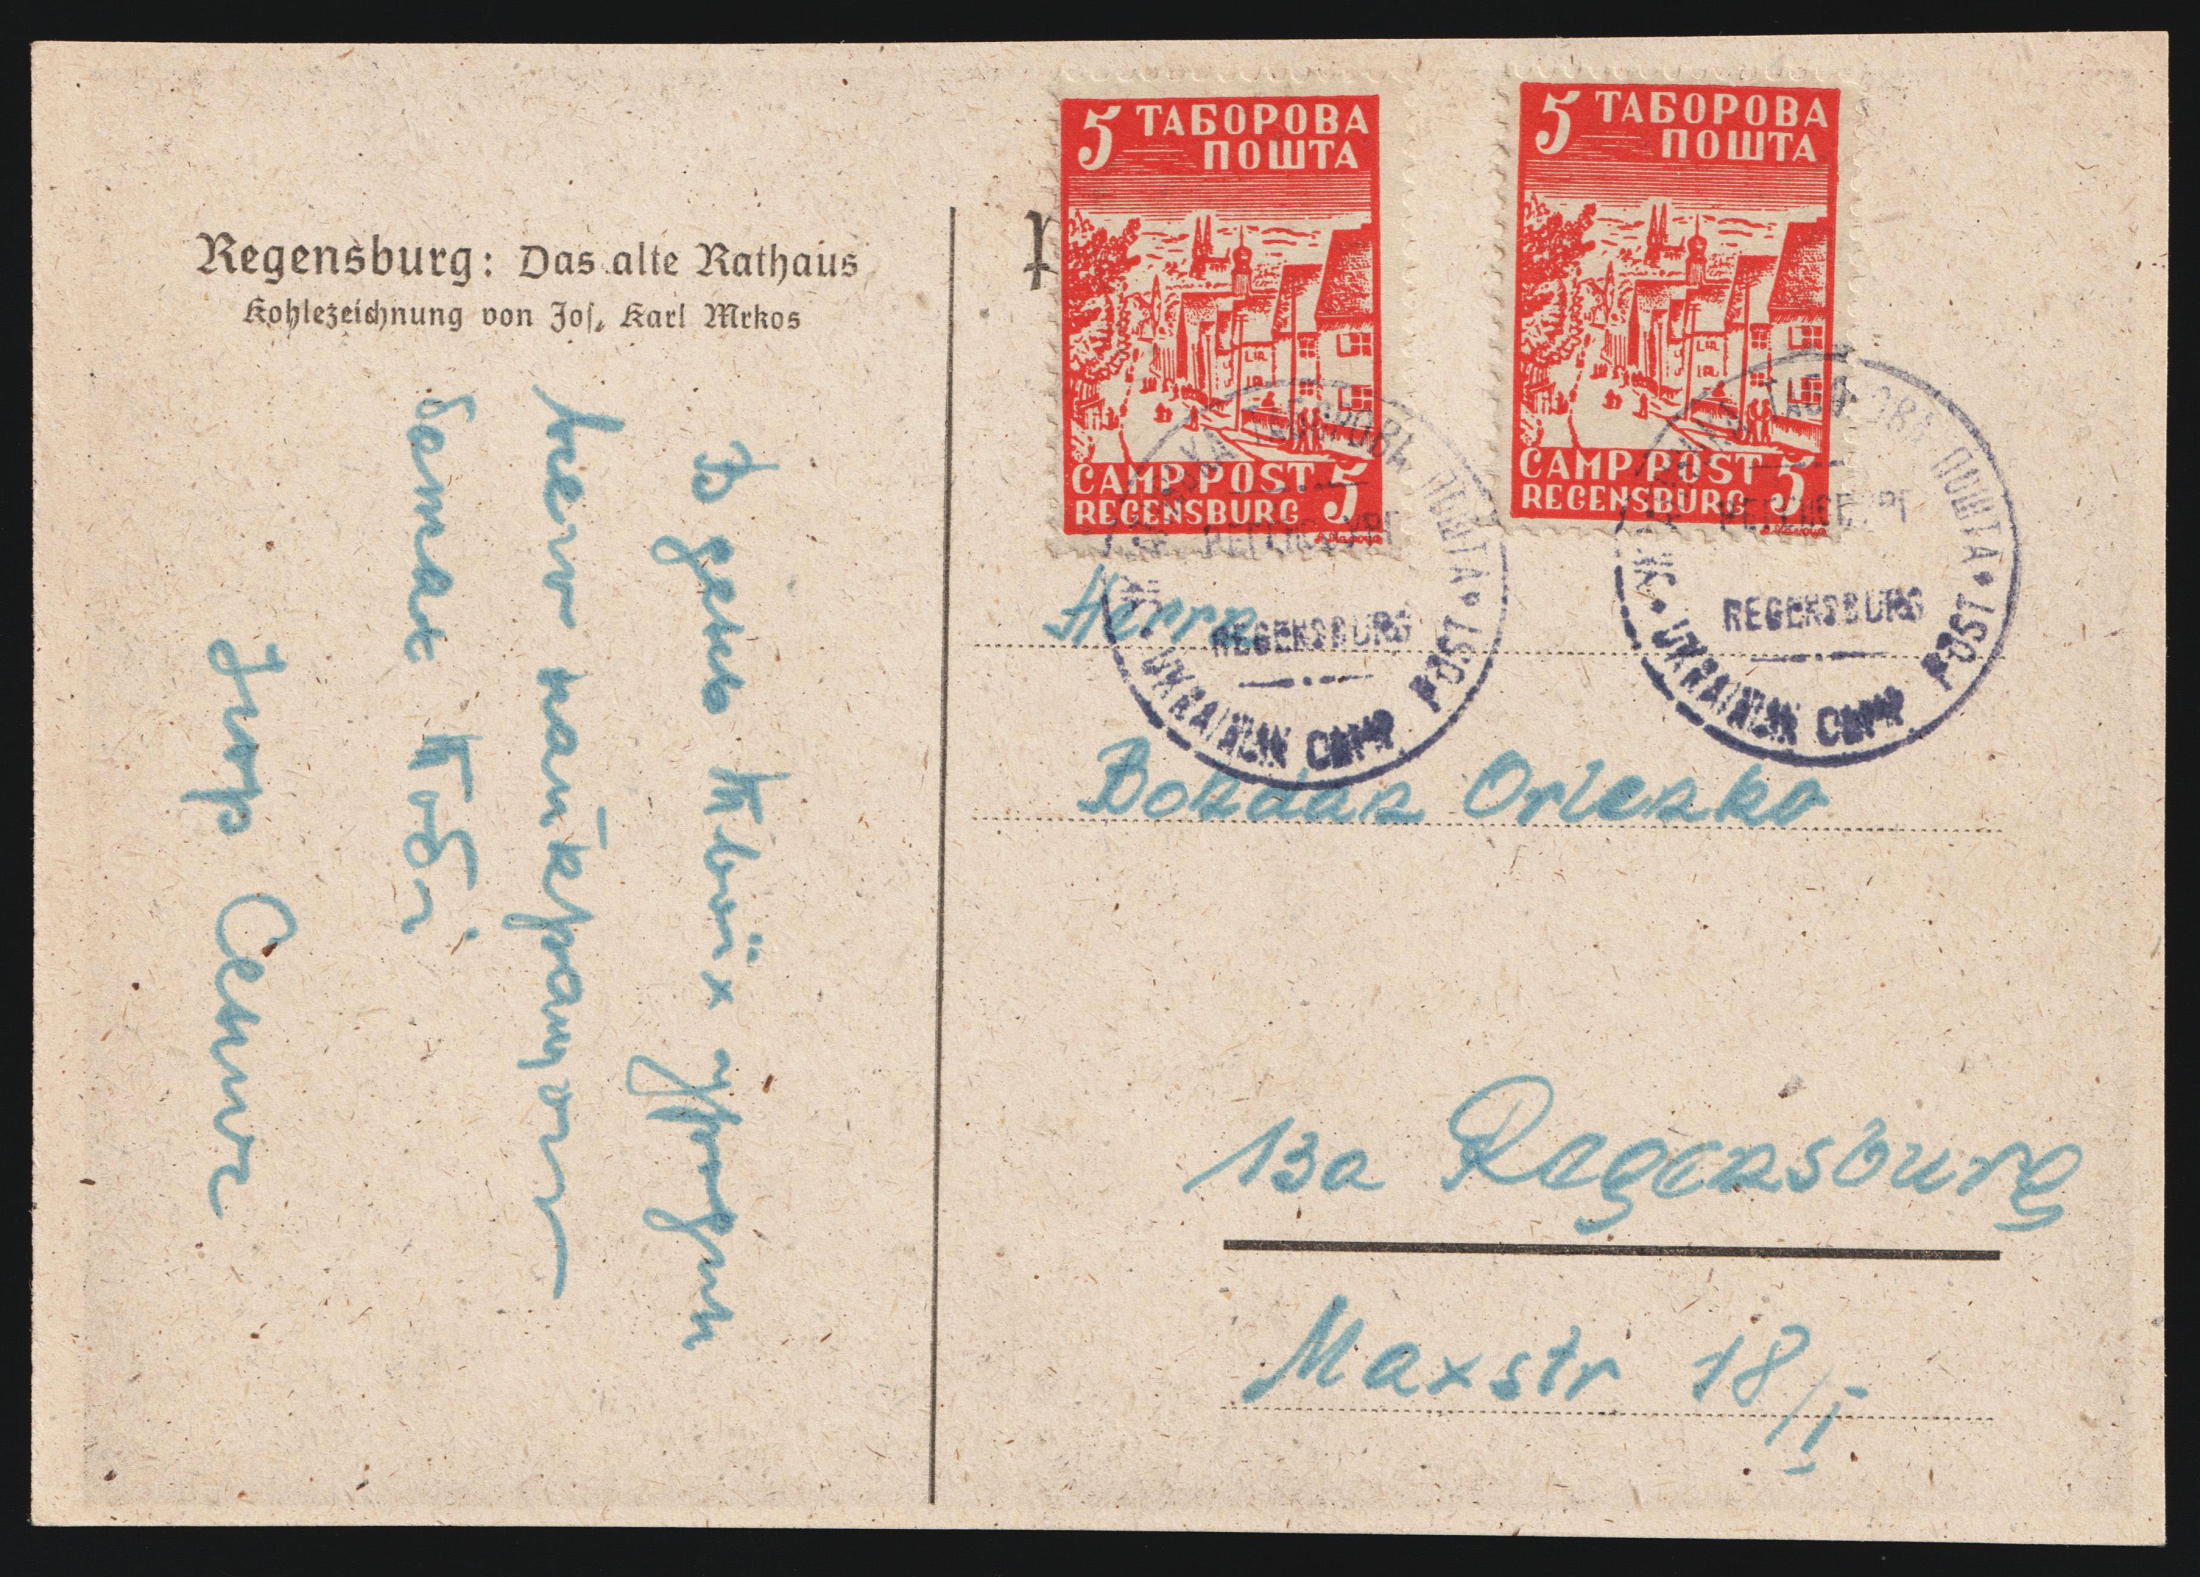 Regensburg: Das alte Rathaus
Kohlezeichnung von Jos. Karl Mrkos
В день Твоїх Уродин
всего найкращого
бажає Тобі
Ігор
5 ТАБОРОВА
ПОШТА
CAMP POST 5
REGENSBURG
5 ТАБОРОВА
ПОШТА
CAMP POST 5
REGENSBURG
ТАБОРОВА ПОШТА
РЕГЕНСБУРГ
REGENSBURG
UKRAINIAN CAMP POST
ТАБОРОВА ПОШТА
РЕГЕНСБУРГ
REGENSBURG
UKRAINIAN CAMP POST
Herrn
Bohdan Orlezko
13a Regensburg
Maxstr 18/I